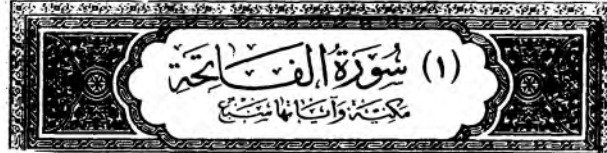 (١) سُورَةُ الفَاتِحَة
مَكيَّة وَآيَاتهَا سَبْع